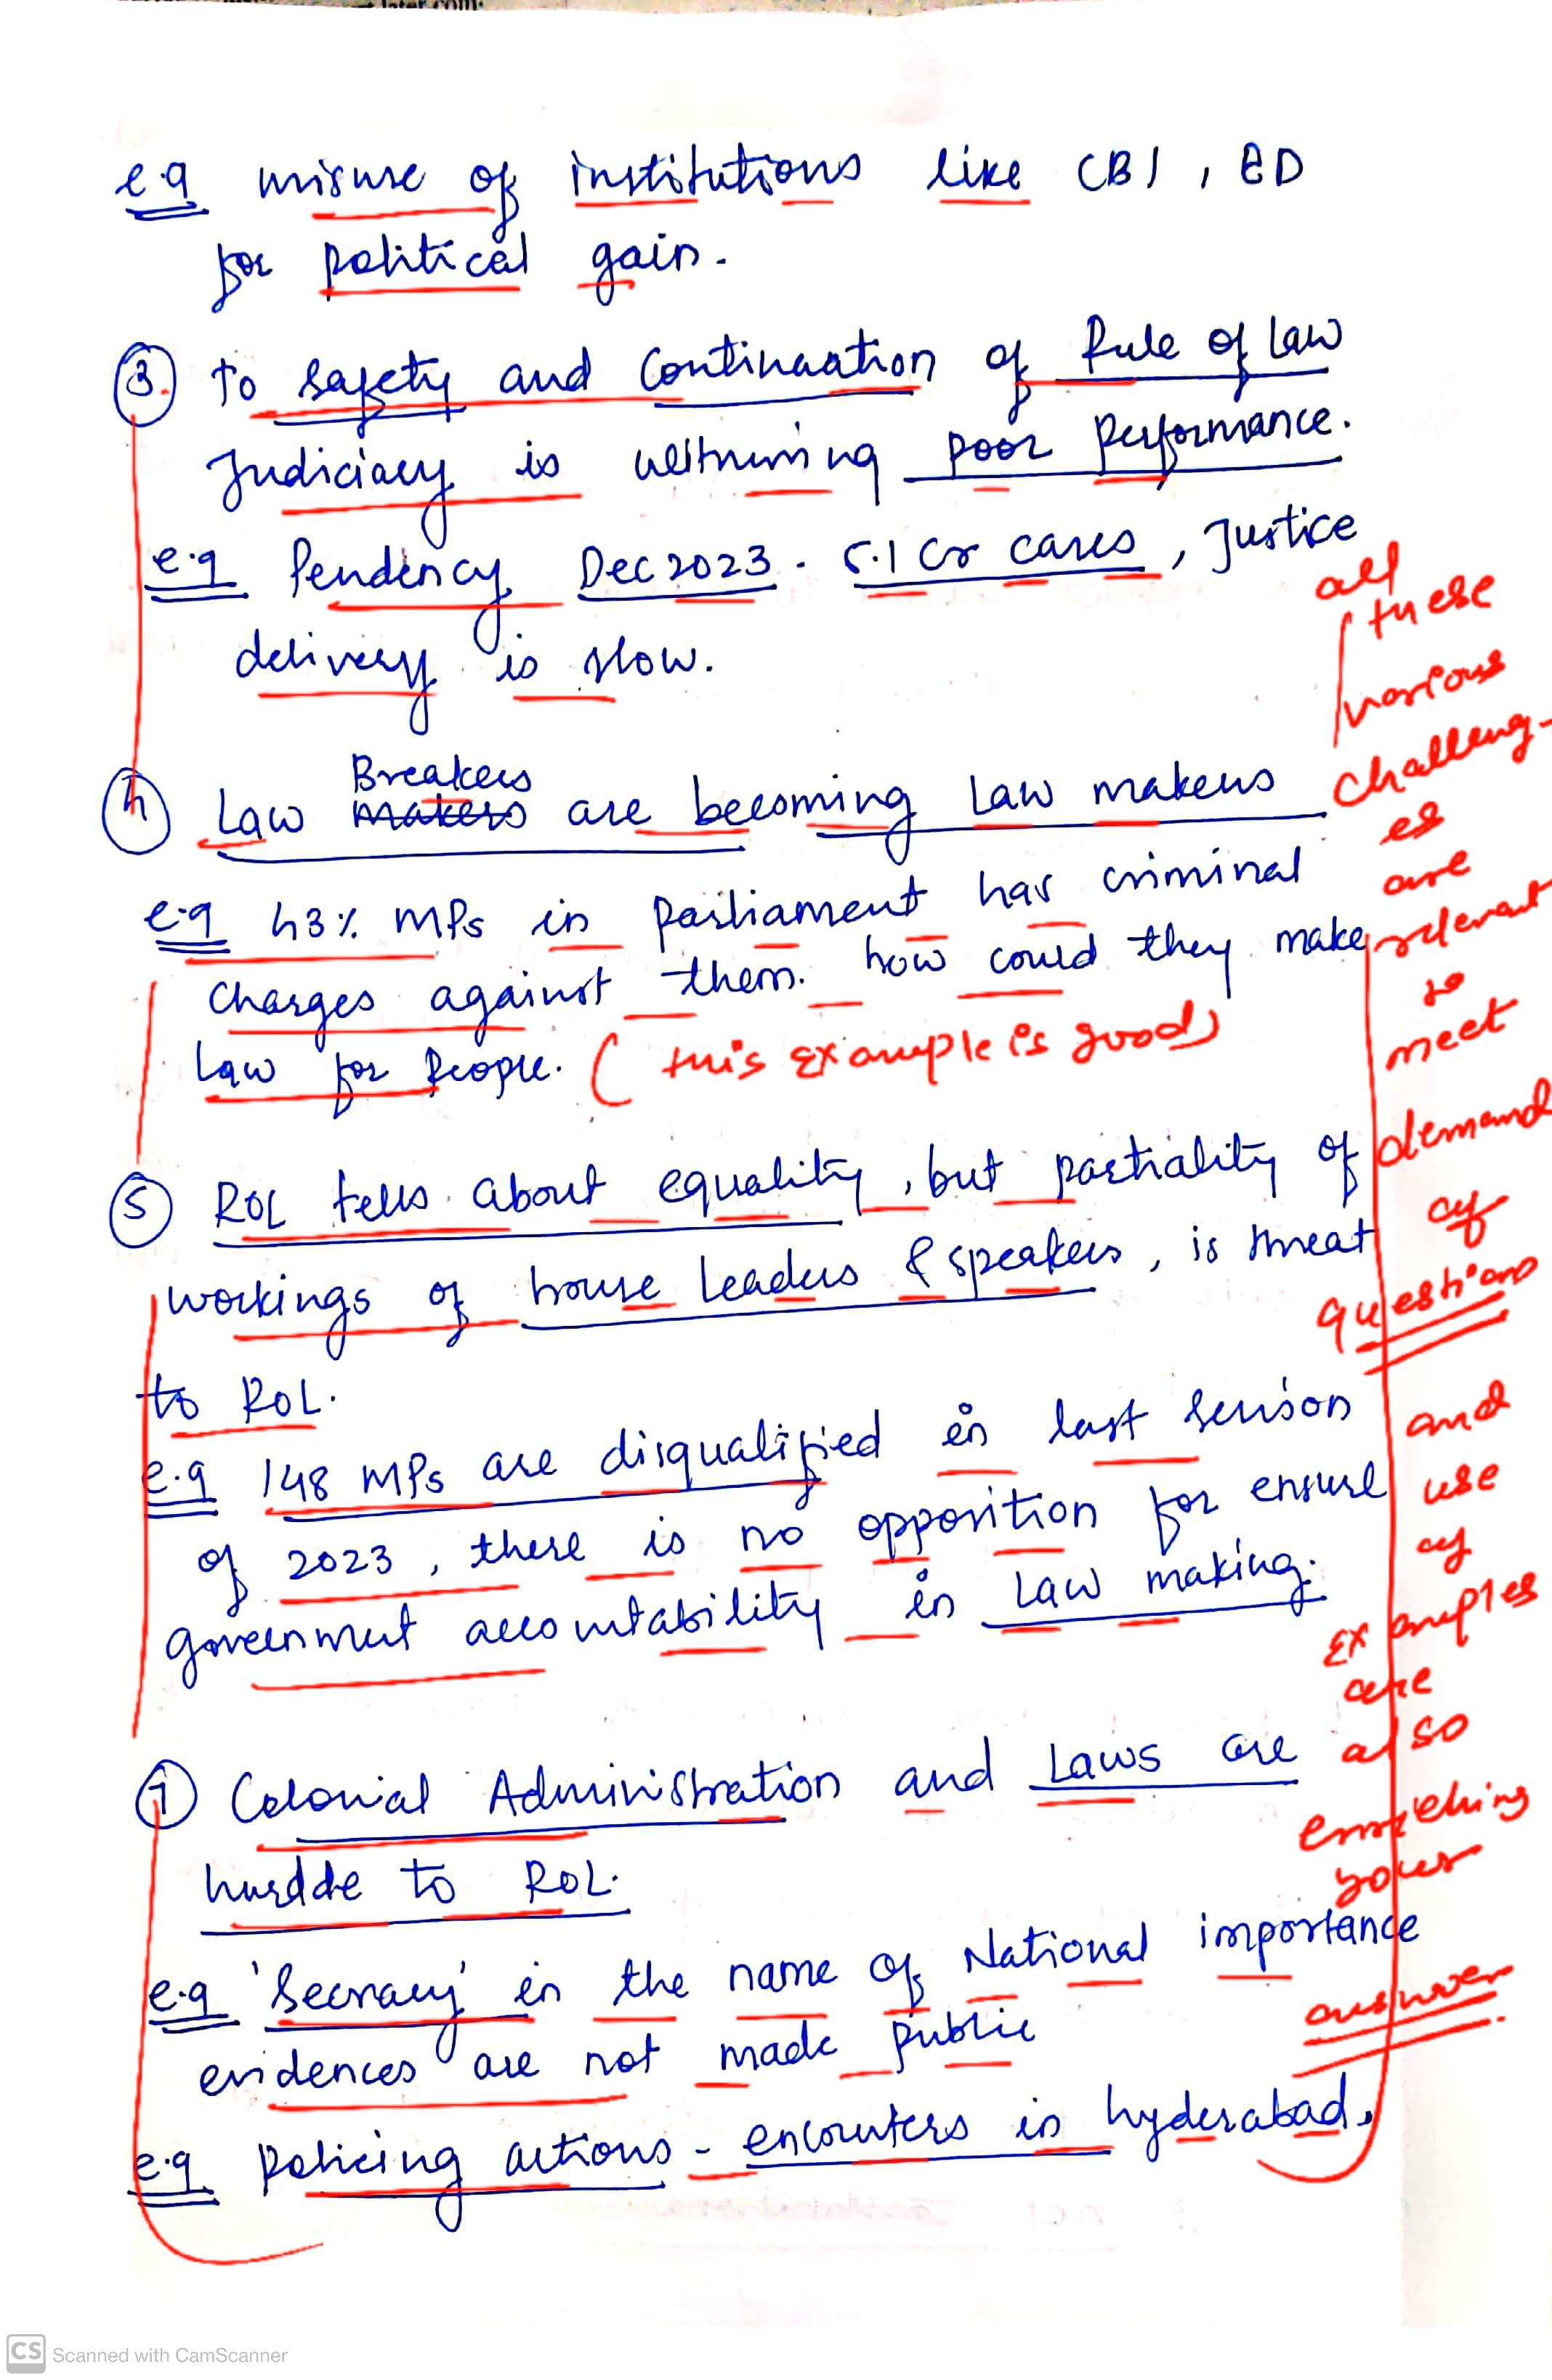 later.com.
e.g misuse of institutions like CBI, ED
for political gain.
③ To safety and continuation of Rule of Law
Judiciary is poor performance.
e.g Pendency Dec 2023. 5.1 Cr cases, Justice
delivery is slow.
④ Law Breakers are becoming Law makers
e.g 43% MPs in parliament has criminal
charges against them. how could they make
Law for People. (this Example is good)
⑤ ROL tells about equality, but partiality of
workings of house Leaders & speakers, is threat
to ROL.
e.g 148 MPs are disqualified in last session
of 2023, there is no opposition for ensure
government accountability in Law making.
Colonial Administration and Laws are
hurdde to ROL.
e.g 'Secracy' in the name of National importance
evidences are not made public
e.g Policing actions - encounters in hyderabad.
all
these
various
challeng-
es
are
relevant
to
meet
demand
of
question
and
use
of
Examples
are
also
enriching
your
answer
CS Scanned with CamScanner